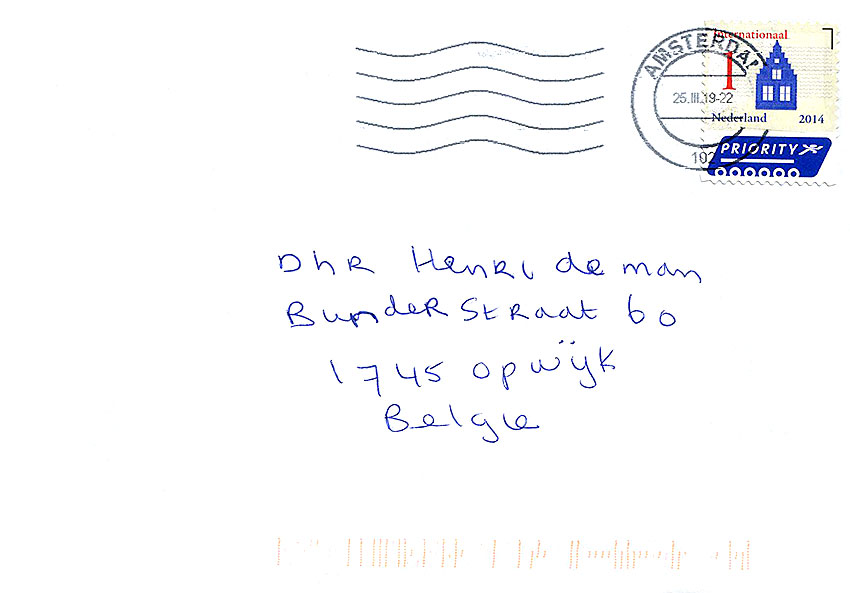 AMSTERDAM
Internationaal
1
25.III.19-22
Nederland 2014
PRIORITY
102
Dhr Henri de man
Bunderstraat 60
1745 opwijk
Belgie